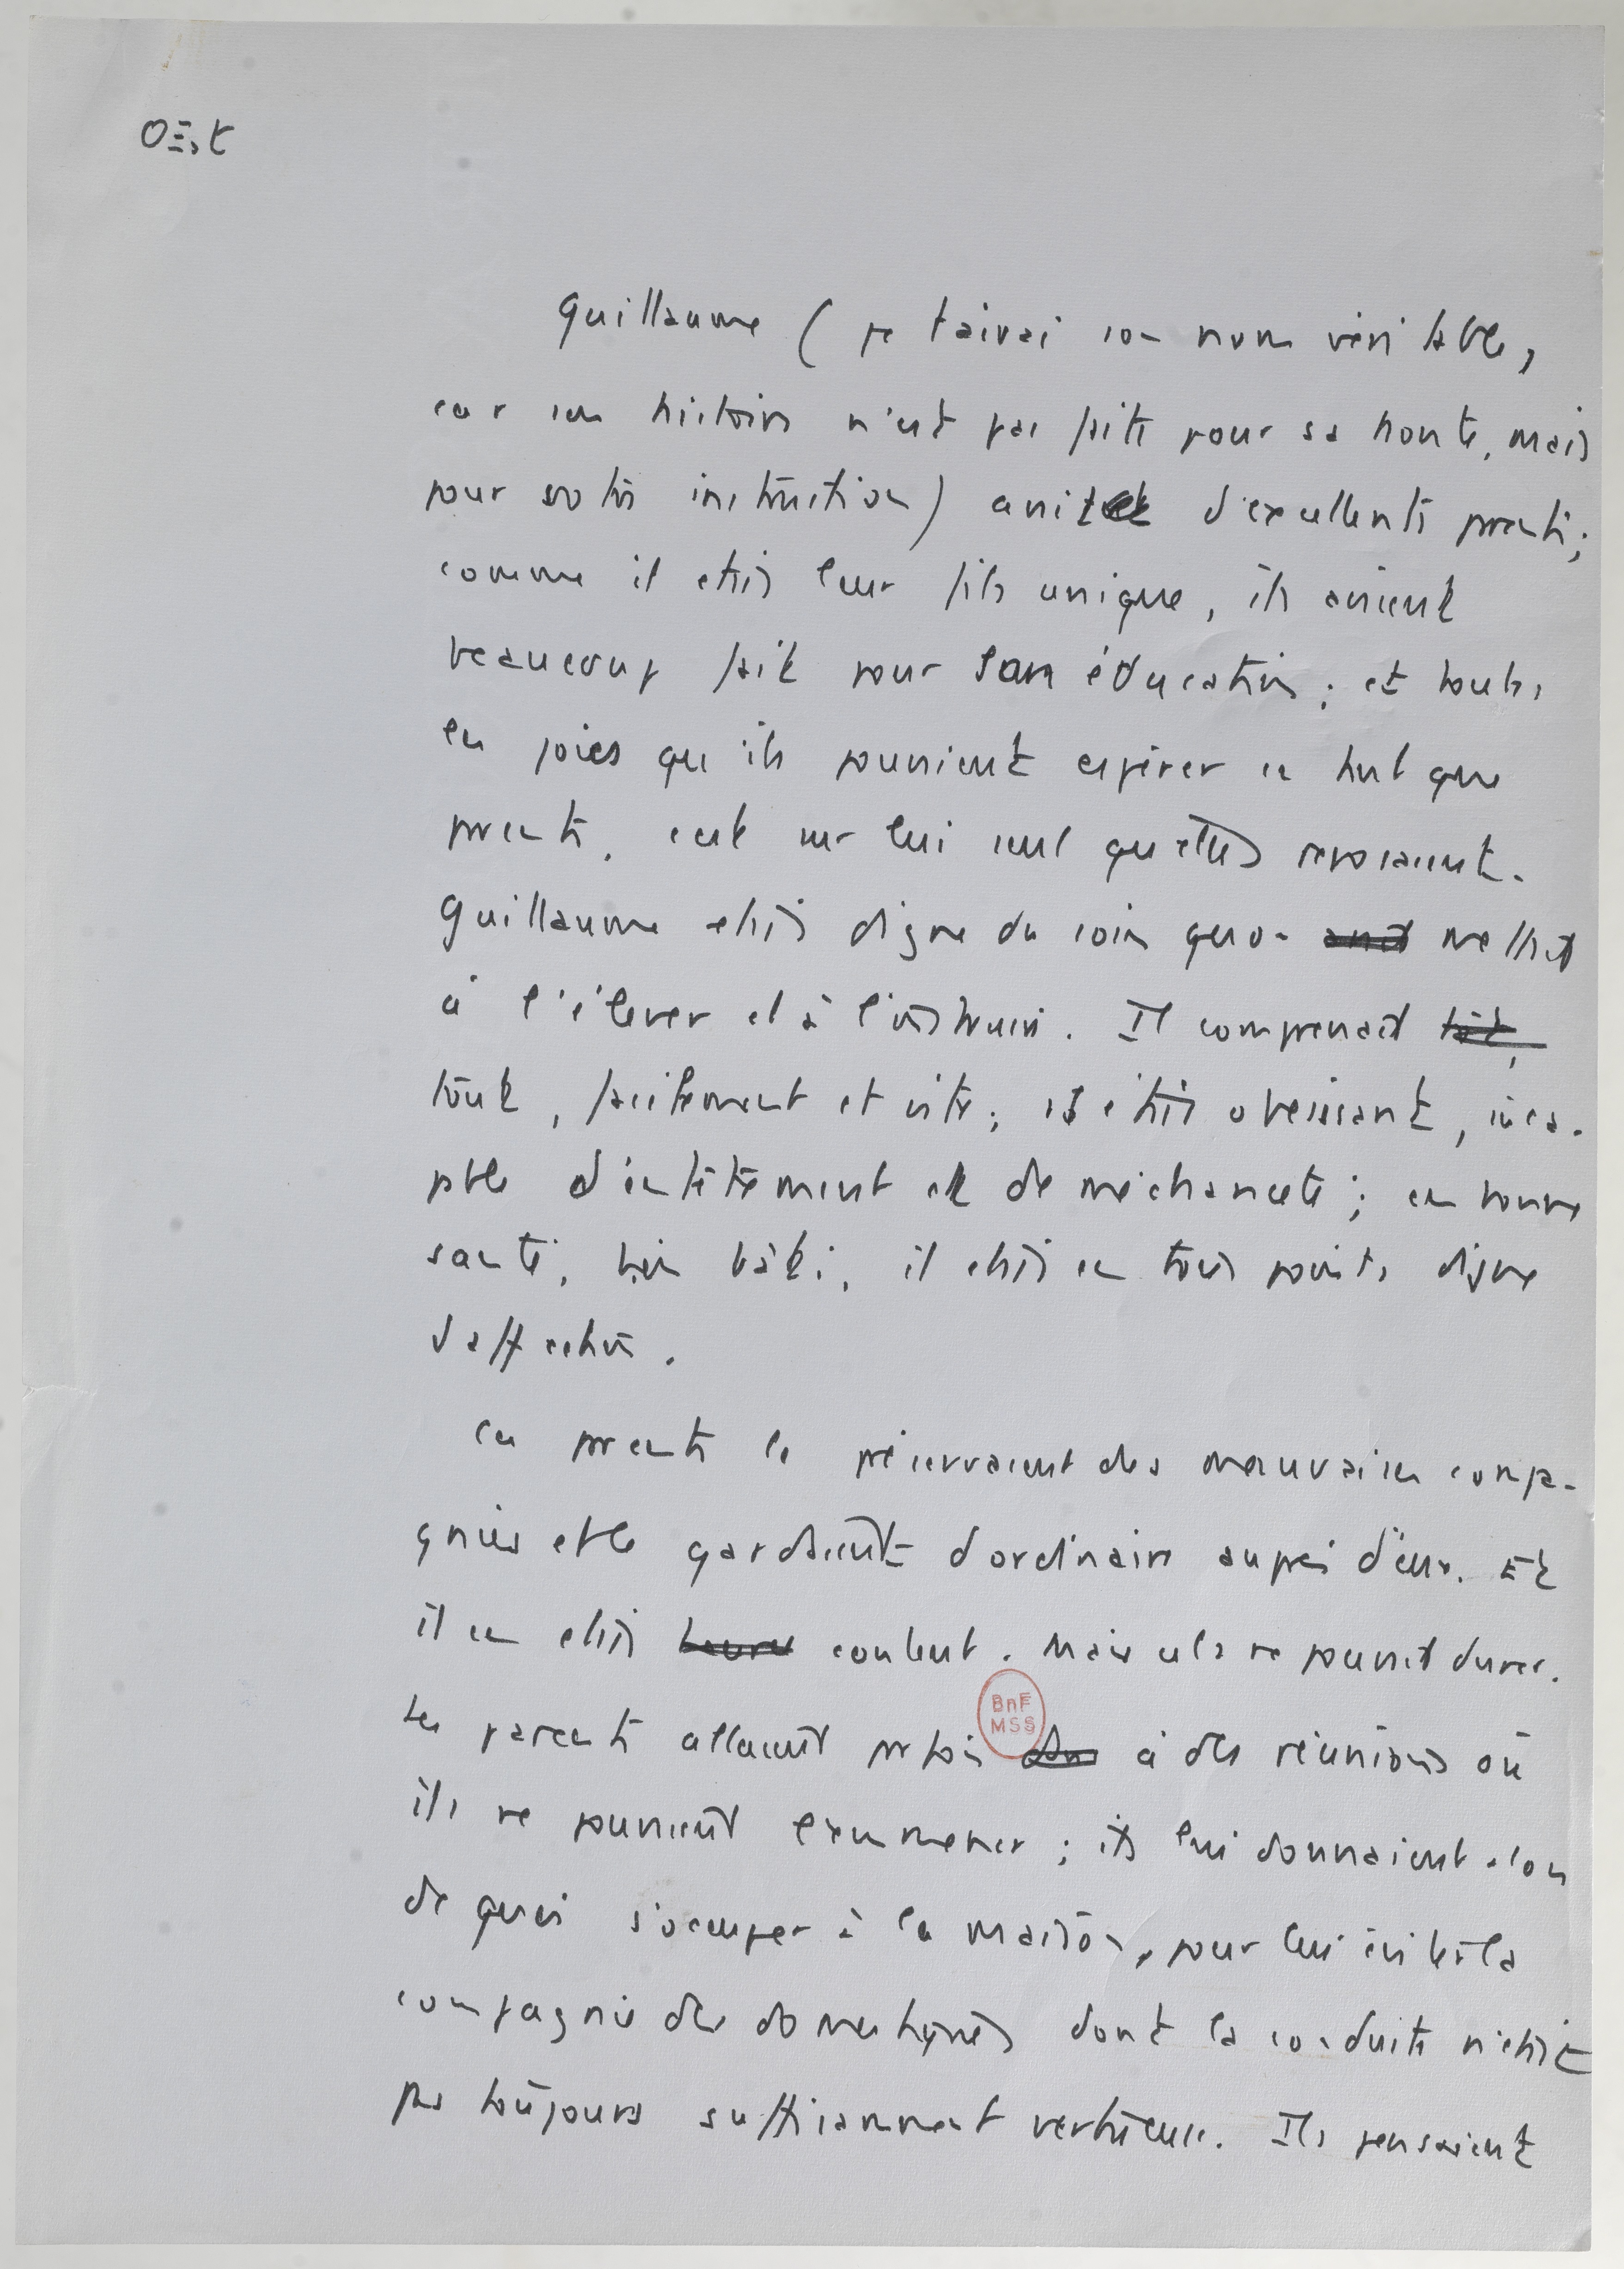 OEst
Guillaume ( je tairai son nom véritable,
car son histoire n'est pas faite pour sa honte, mais
pour votre instruction) avait d'excellents parents ;
comme il était leur fils unique, ils avaient
beaucoup fait pour son éducation ; et toutes
les joies qu'ils pouvaient espérer en tant que
parents, c'est sur lui seul qu'elles reposaient.
Guillaume était digne du soin qu'on mettait
à l'élever et à l'instruire. Il comprenait
tout, facilement et vite ; il était obéissant, inca-
pable d'entêtement et de méchanceté ; en bonne
santé, bien bâti, il était en tous points digne
d'affection.
Ses parents le préservaient des mauvaises compa-
gnies et le gardaient d'ordinaire auprès d'eux. Et
il en était content. Mais cela ne pouvait durer.
Les parents allaient parfois à des réunions où
ils ne pouvaient l'emmener ; ils lui donnaient alors
de quoi s'occuper à la maison, pour lui éviter la
compagnie des domestiques dont la conduite n'était
pas toujours suffisamment vertueuse. Ils pensaient
BnF
MSS